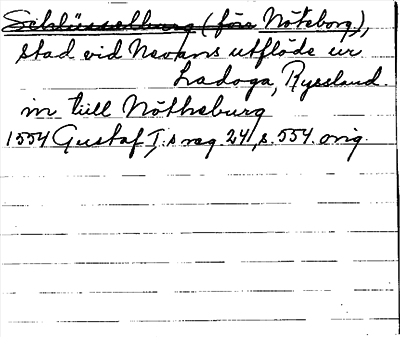 Schlüsselburg (förr Nöteborg),
stad vid Nevans utflöde ur
Ladoga, Ryssland.
in till Nötheburg
1554 Gustaf I:s reg. 24, s. 554. orig.